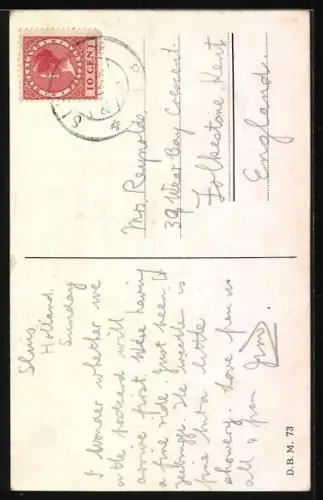 Sluis
Holland.
Sunday
I wonder whether we
or the postcard will
arrive first. We're having
a fine ride. Just been to
Zeebrugge. The weather is
fine but a little
showery. Love from us
all 4 from
D.B.M. 73
10 CENT
Mrs. Reynolds.
39 West Bay Crescent.
Folkestone. Kent.
England.